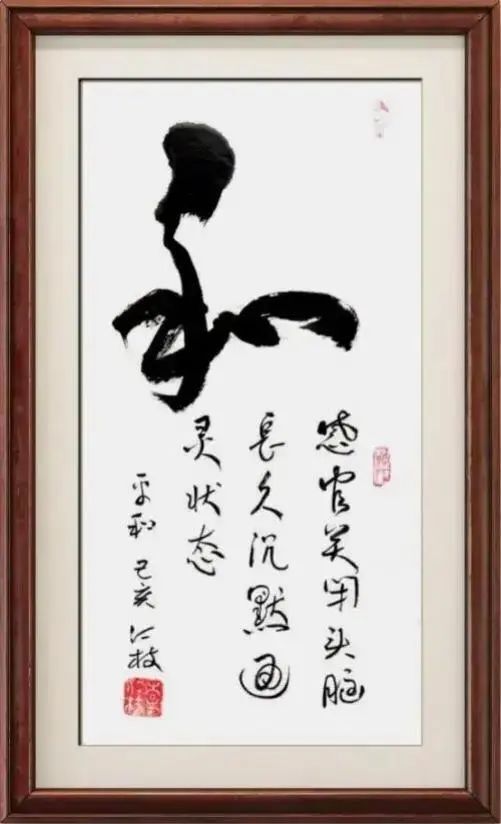 和
感官关闭头脑
長久沉默通
灵状态
平和 己亥 枝